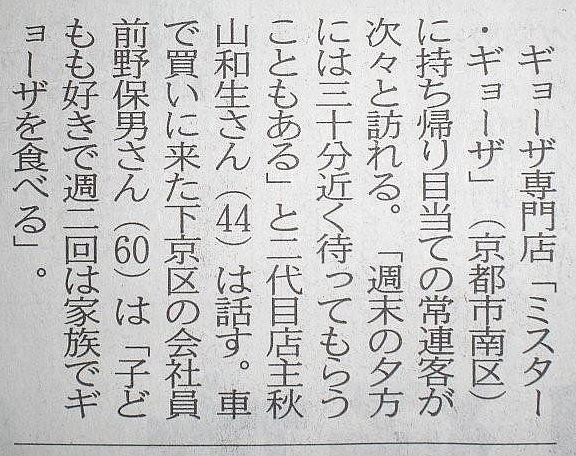 ギョーザ専門店「ミスター
・ギョーザ」（京都市南区）
に持ち帰り目当ての常連客が
次々と訪れる。「週末の夕方
には三十分近く待ってもらう
こともある」と二代目店主秋
山和生さん（44）は話す。車
で買いに来た下京区の会社員
前野保男さん（60）は「子ど
もも好きで週二回は家族でギ
ョーザを食べる」。